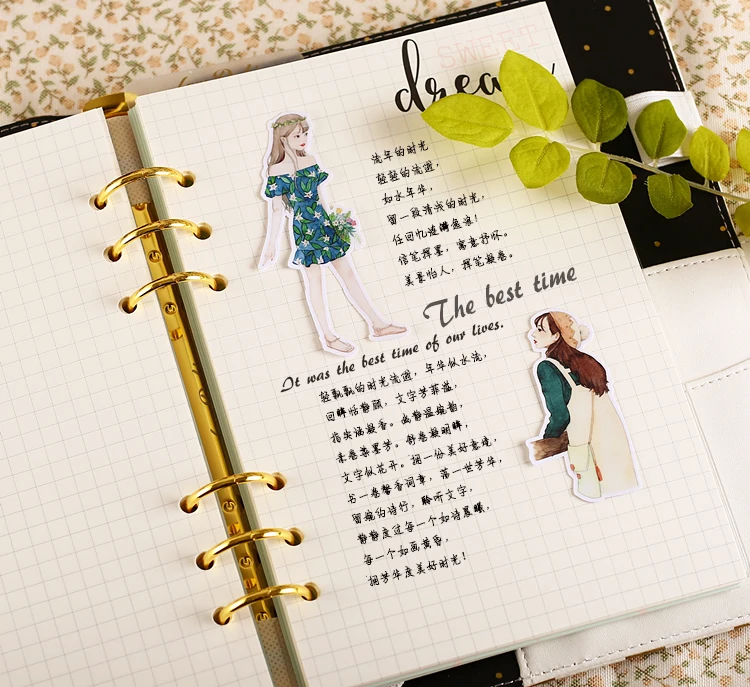 SWEET
流年的时光
轻轻的流逝，
如水年华，
留一段清浅的时光，
任回忆追眸鱼浪！
信笔挥墨，寓意抒怀。
美景怡人，挥笔凝卷。
The best time
It was the best time of our lives.
轻飘飘的时光流逝，年华似水流，
回眸恬静颜，文字芳菲溢，
指尖涵凝香。幽静温婉韵，
柔卷染墨芳。舒卷凝明眸，
文字似花开。拥一份美好意境，
书一卷馨香词章，落一世芳华，
留婉约诗行，聆听文字，
静静度过每一个如诗晨曦，
每一个如画黄昏，
拥芳华度美好时光！